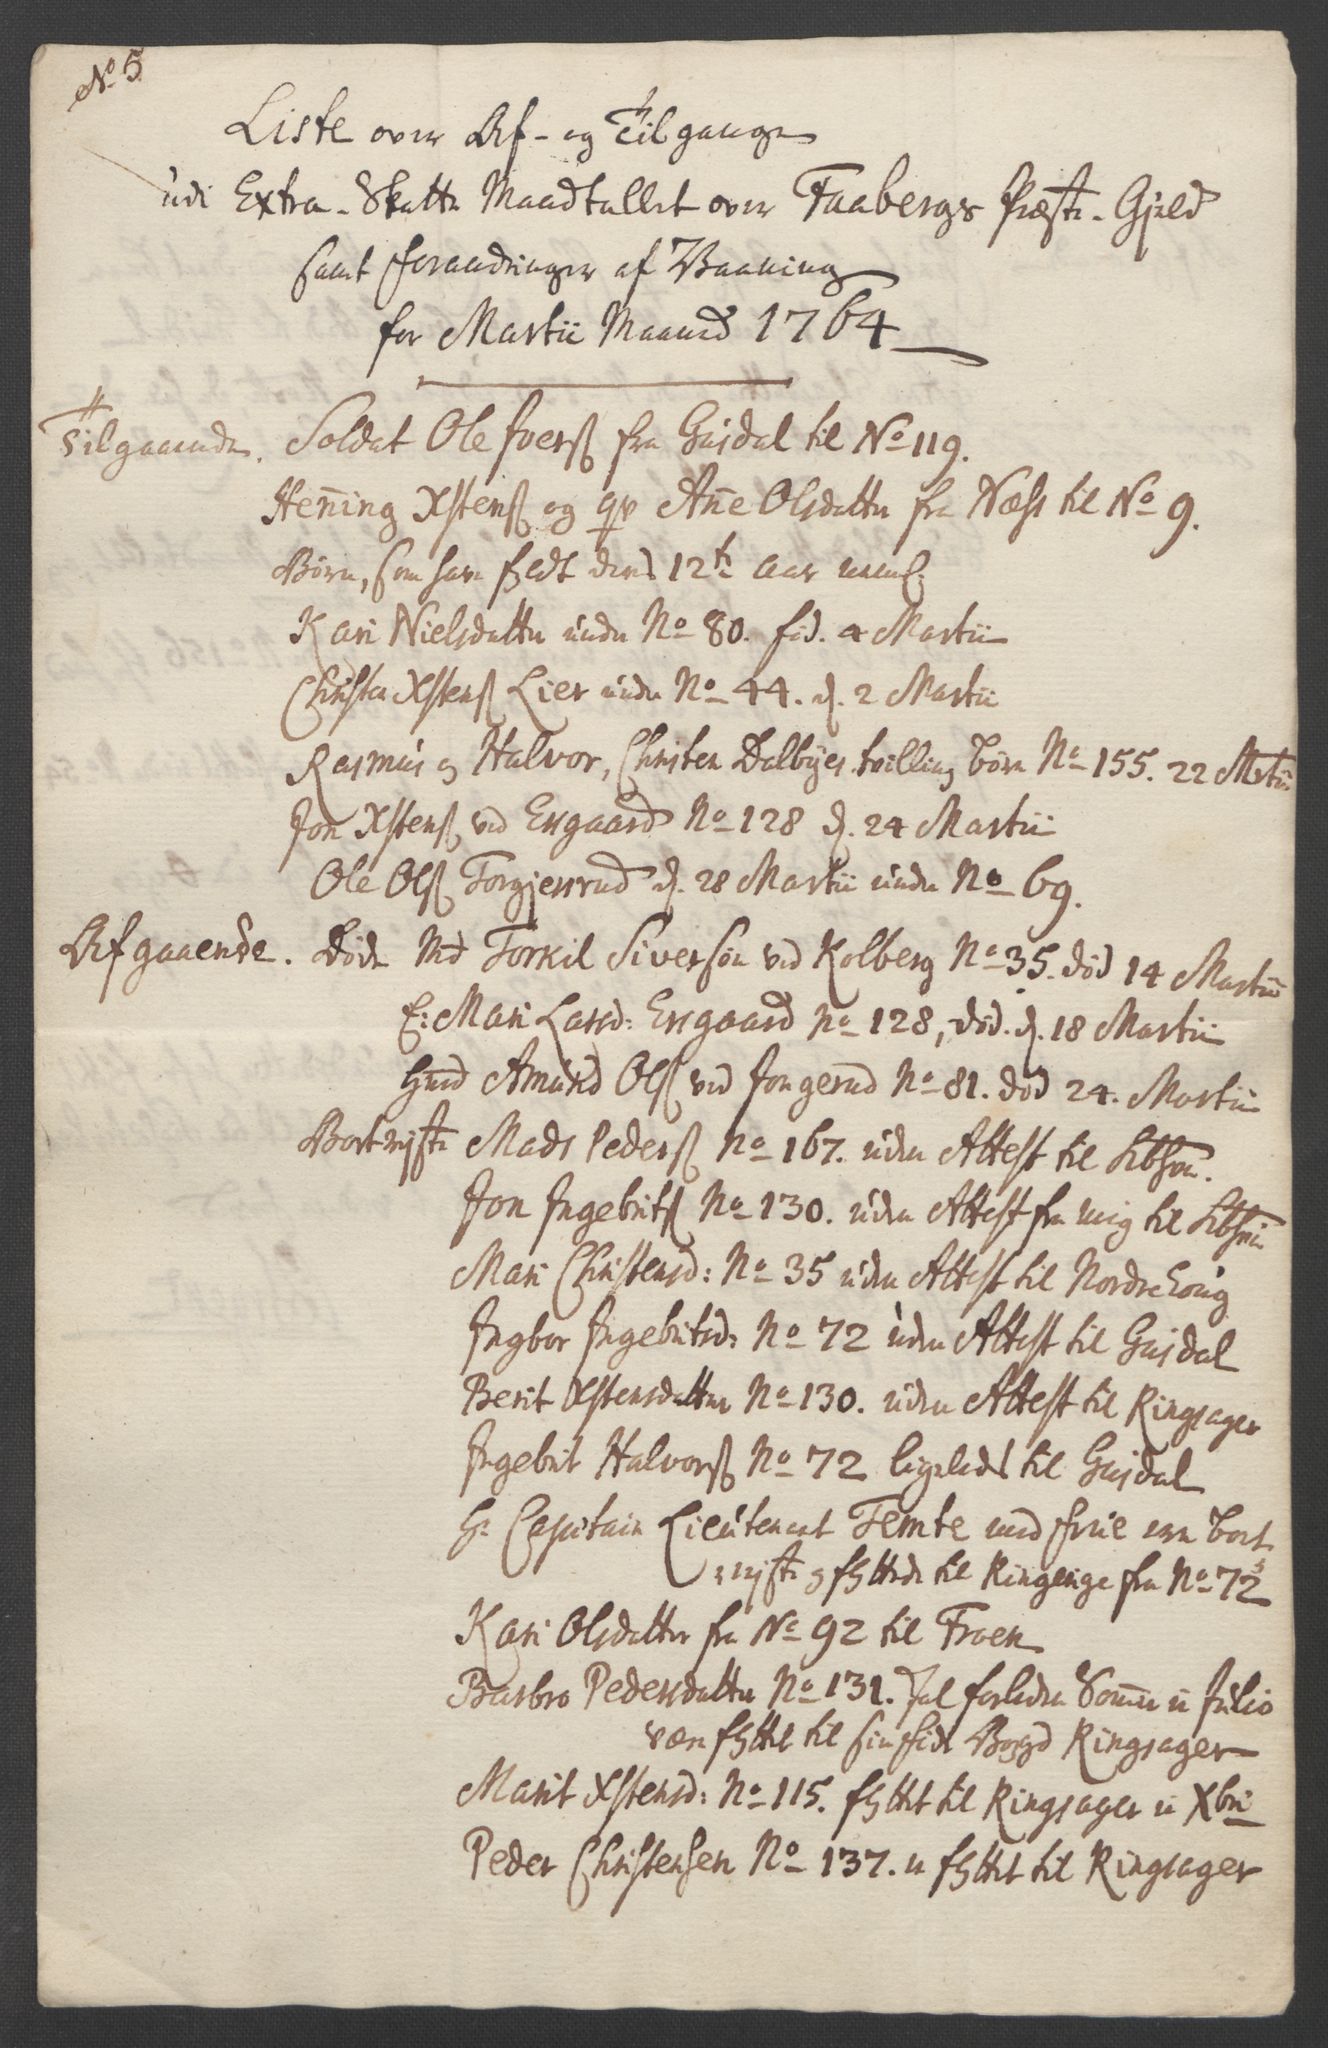 No 5
Liste over Af- og Tilgange
udi Extra-Skatte Mandtallet over Faabergs Præste-Gjeld
samt forandringer af Vaaning
for Martii Maaned 1764
Tilgaaende. Soldat Ole Iverß fra Gusdal til No 119.
Hen̄ing Xstenß og qv An̄e Olsdatter fra Næss til No 9.
Børn, som have fyldt deres 12te Aar neml.
Kari Nielsdatter under No 80. fød. 4 Martii
Christen Xstenß Lier under No 44. d. 2 Martii
Rasmus og Halvor, Christen Dalbyes tvilling børn No 155. 22 Martii
Jon Xstenß ved Ersgaard No 128 d. 24 Martii
Ole Olß Torgjersrud d. 28 Martii under No 69.
Afgaaende. Døde Md Torkil Siversøn ved Kolberg No 35. død 14 Martii
E: Mari Larsd: Ersgaard No 128, død. d. 18 Martii
Amund Olß ved Jongerud No 81. død 24. Martii
Bortrejste Mads Pederß No 167. uden Attest til
Jon Ingebritß No 130. uden Attest fra mig til
Mari Christensd: No 35 uden Attest til Nordrehoug
Ingbor Ingebritsd: No 72 uden Attest til Gusdal
Berit Xstensdatter No 130. uden Attest til Ringsager
Ingebrit Halvorß No 72 ligeledes til Gusdal
Hr Capitain Lieutenant Temte med frue ere bort-
rejste og flyttede til Ringerige fra No 72
Kari Olsdatter fra No 92 til Froen
Barbro Pedersdatter No 131. skal forleden Som̄er i Julio
være flyttet til sin føde Bøygd Ringsager
Marit Xstensd: No 115. flyttet til Ringsager i Xbri
Peder Christensen No 137. er flyttet til Ringsager